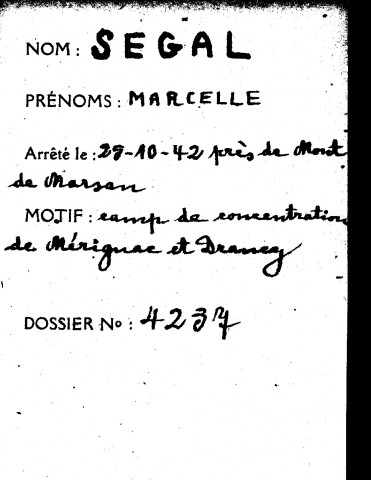 NOM : SEGAL
PRÉNOMS : MARCELLE
Arrêté le : 29-10-42 près de Mont
de Marsan
MOTIF : camp de concentration
de Mérignac et Drancy
DOSSIER No : 4237